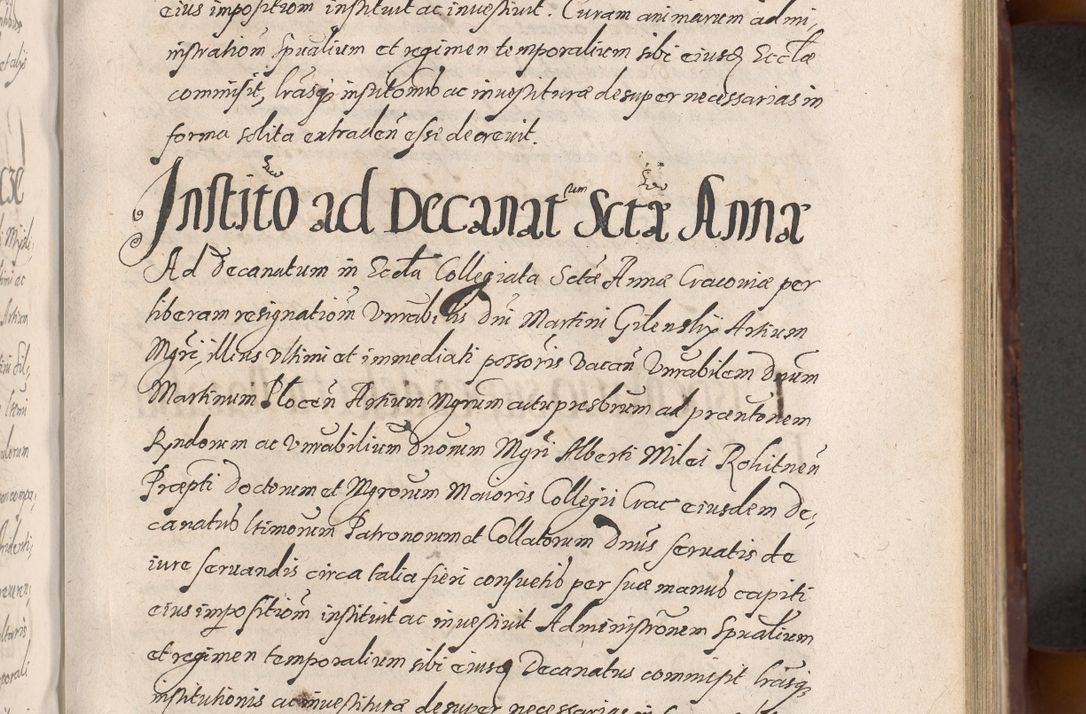 eius impositiom instituit ac inuestiuit. Curam animarum admi,
nistrationē Spualium et regimen temporalium sibi eiusq Eccłæ
commisit, lrasq institōnis ac inuestituræ desuper necessarias in
forma solita extradeñ esse decreuit.
Institõ ad Decanatum Sctæ Annæ
Ad Decanatum in Eccła Collegiata Sctæ Annæ Cracouiæ per
liberam resignationē Vnrabilis Dni Martini Gilensky Artium
Mgri, illius vltimi et immediati possoris vacañ Vnrabilem Dnum
Martinum Płoceñ Artium Mgrum actu presbrum ad præntonem
Rndorum ac Vnrabilium Dnorum Mgri Alberti Milei Rohitneñ
Præpti Doctorum et Mgrorum Maioris Collegij Crac eiusdem De,
canatus ltimorum Patronorum et Collatorum Dnus seruatis de
iure seruandis circa talia fieri consuetis per suæ manus capiti
eius impositiom instituit ac inuestiuit Administronem Spualium
et regimen temporalium sibi eiusq Decanatus commisit lrasq
institutionis ac inuestituræ desuper necessarias in forma